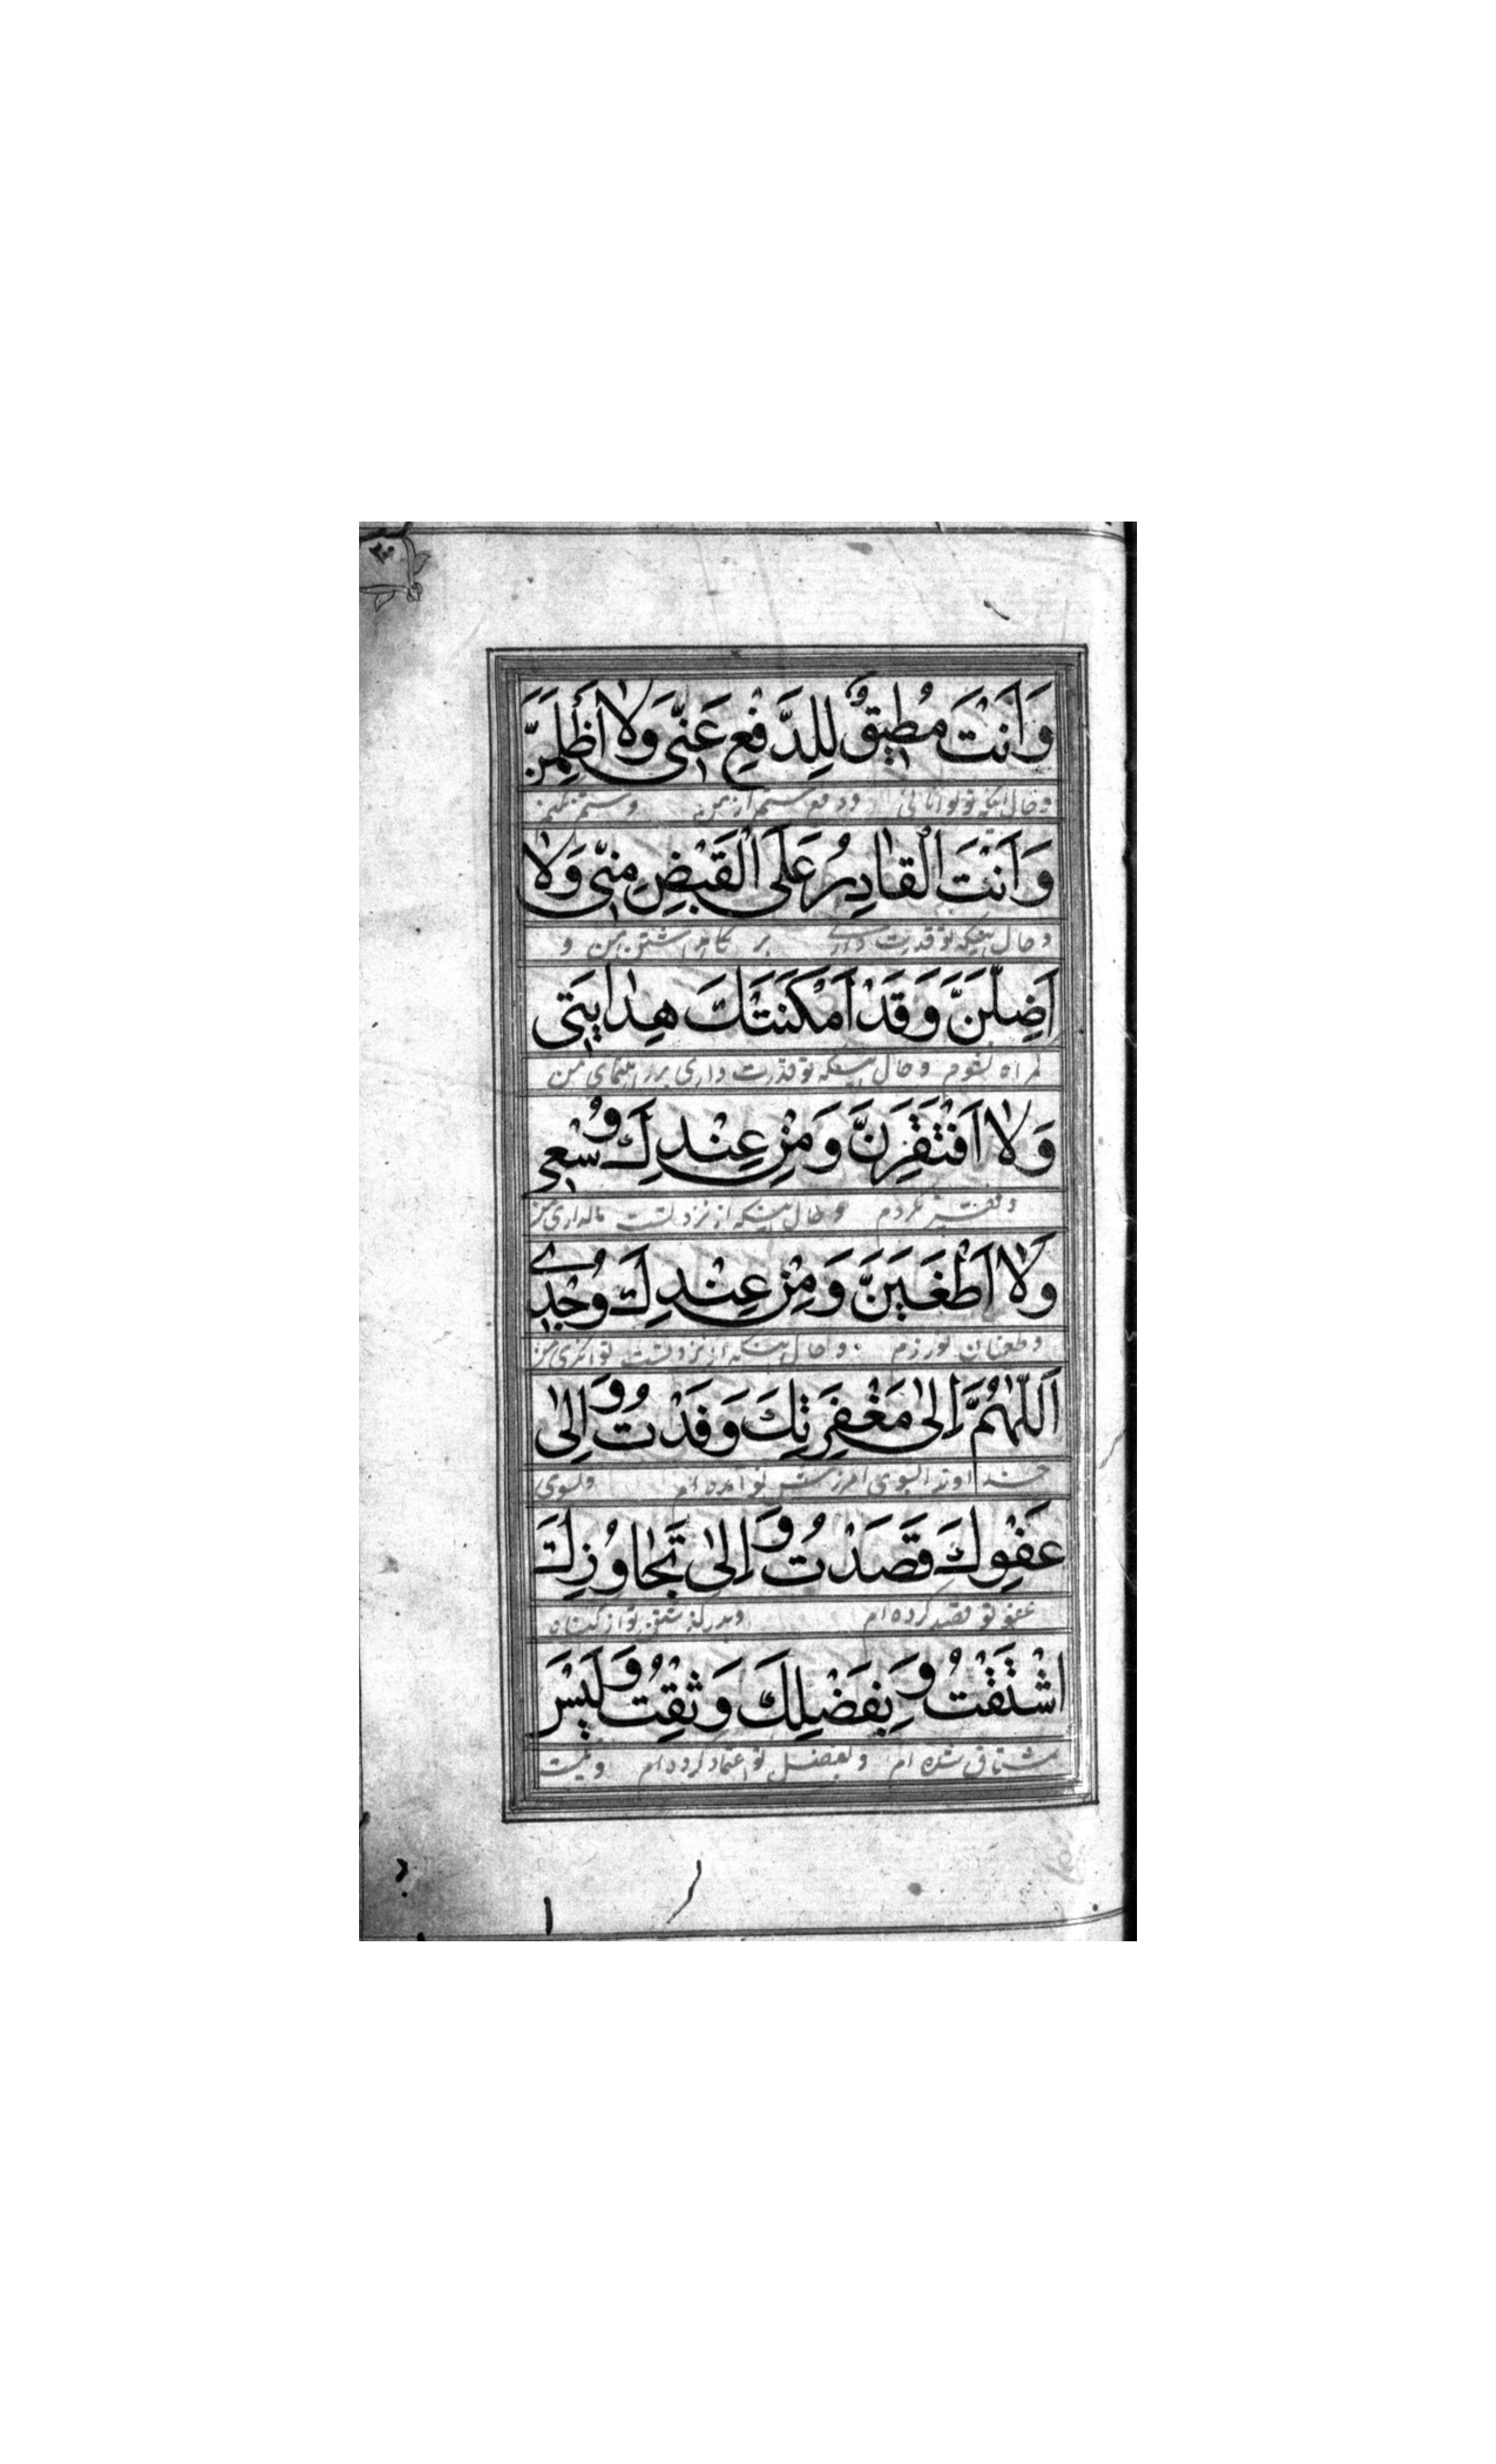 وَاَنْتَ مُطیقٌ لِلدَّفْعِ عَنّی وَلاٰ أَظْلِمَنَّ
وحال اینکه تو توانائی ودفع ستم از من وستم نکنم
وَاَنْتَ الْقٰادِرُ عَلَی الْقَبْضِ مِنّی وَلاٰ
وحال اینکه تو قدرت داری بر من و
اَضِلَّنَّ وَقَدْ اَمْکَنَتْكَ هِدٰایَتی
گمراه نشوم وحال اینکه تو قدرت داری بر راهنمای من
وَلاٰ اَفْتَقِرَنَّ وَمِنْ عِنْدِكَ وُسْعی
وفقیر نگردم وحال اینکه از نزد تست مالداری من
وَلاٰ اَطْغَیَنَّ وَمِنْ عِنْدِكَ وُجْدی
وطغیان نورزم وحال اینکه از نزد تست توانگری من
اَللّٰهُمَّ اِلیٰ مَغْفِرَتِكَ وَفَدْتُ وَ اِلیٰ
خداوندا بسوی امرزش تو آمده ام وبسوی
عَفْوِكَ قَصَدْتُ وَ اِلیٰ تَجٰاوُزِكَ
عفو تو قصد کرده ام وبدرگذشتن تو از گناه
اشْتَقْتُ وَ بِفَضْلِكَ وَثِقْتُ وَ لَیْسَ
مشتاق شده ام وبفضل تو اعتماد کرده ام ونیست